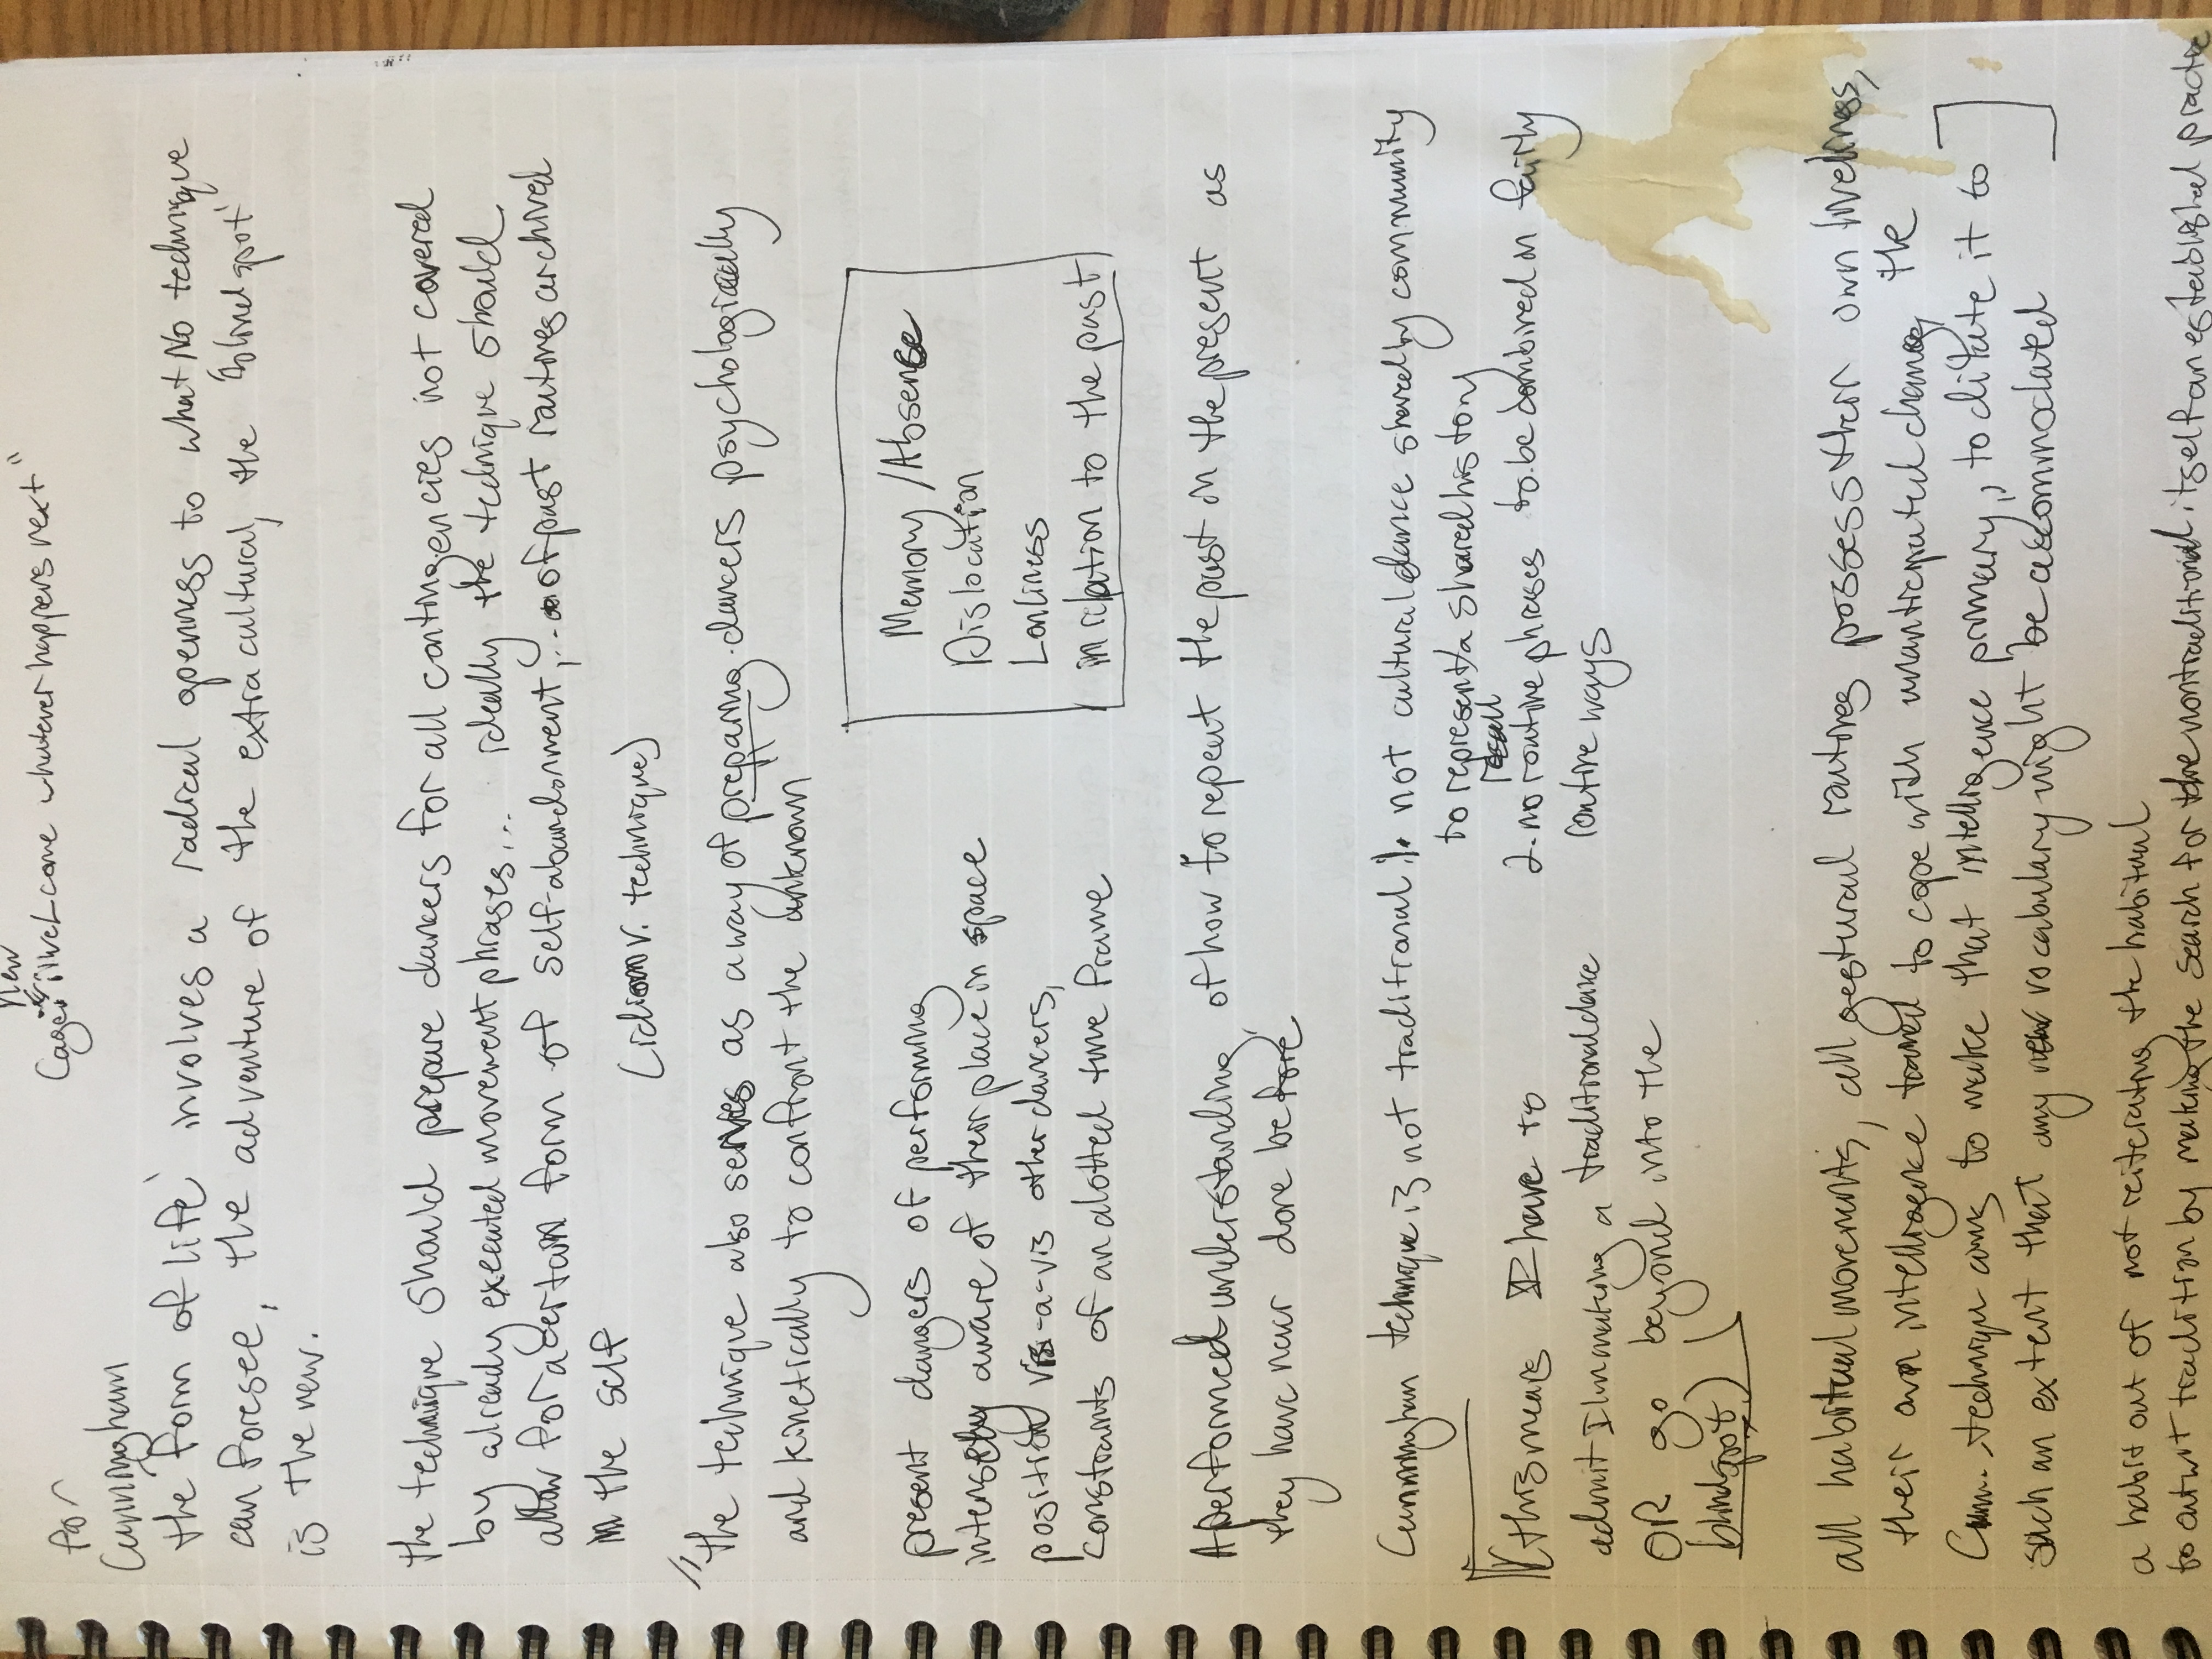 new
Cage: "welcome whatever happens next"
for
Cunningham
the 'form of life' involves a radical openness to what No technique
can foresee, the adventure of the extra cultural, the 'blind spot'
is the new.
the technique should prepare dancers for all contingencies not covered
by already executed movement phrases... ideally the technique should
allow for a certain form of self-abandonment, ... of past routines archived
in the self
(idiom v. technique)
// the technique also serves as a way of preparing dancers psychologically
and kinetically to confront the unknown
Memory / Absense
Dislocation
Lonliness
in relation to the past
present dangers of performing
intensely aware of their place in space
position vis-a-vis other dancers,
constraints of an alotted time frame
A performed understanding of how to repeat the past in the present as
they have never done before
Cunningham technique is not traditional: 1. not cultural dance shared by community
to represent/a shared history
recall
2. no routine phrases to be combined in fairly
routine ways
[this means I have to
admit I'm making a traditional dance
OR go beyond into the
blindspot)
all habitual movements, all gestural routines possess their own liveliness,
their own intelligence tuned to cope with unanticipated change, the
Cunn. technique aims to make that intelligence primary, to dilute it to ]
such an extent that any new vocabulary might be accommodated
a habit out of not reiterating the habitual
to outwit tradition by making the search for the nontraditional itself an established practice